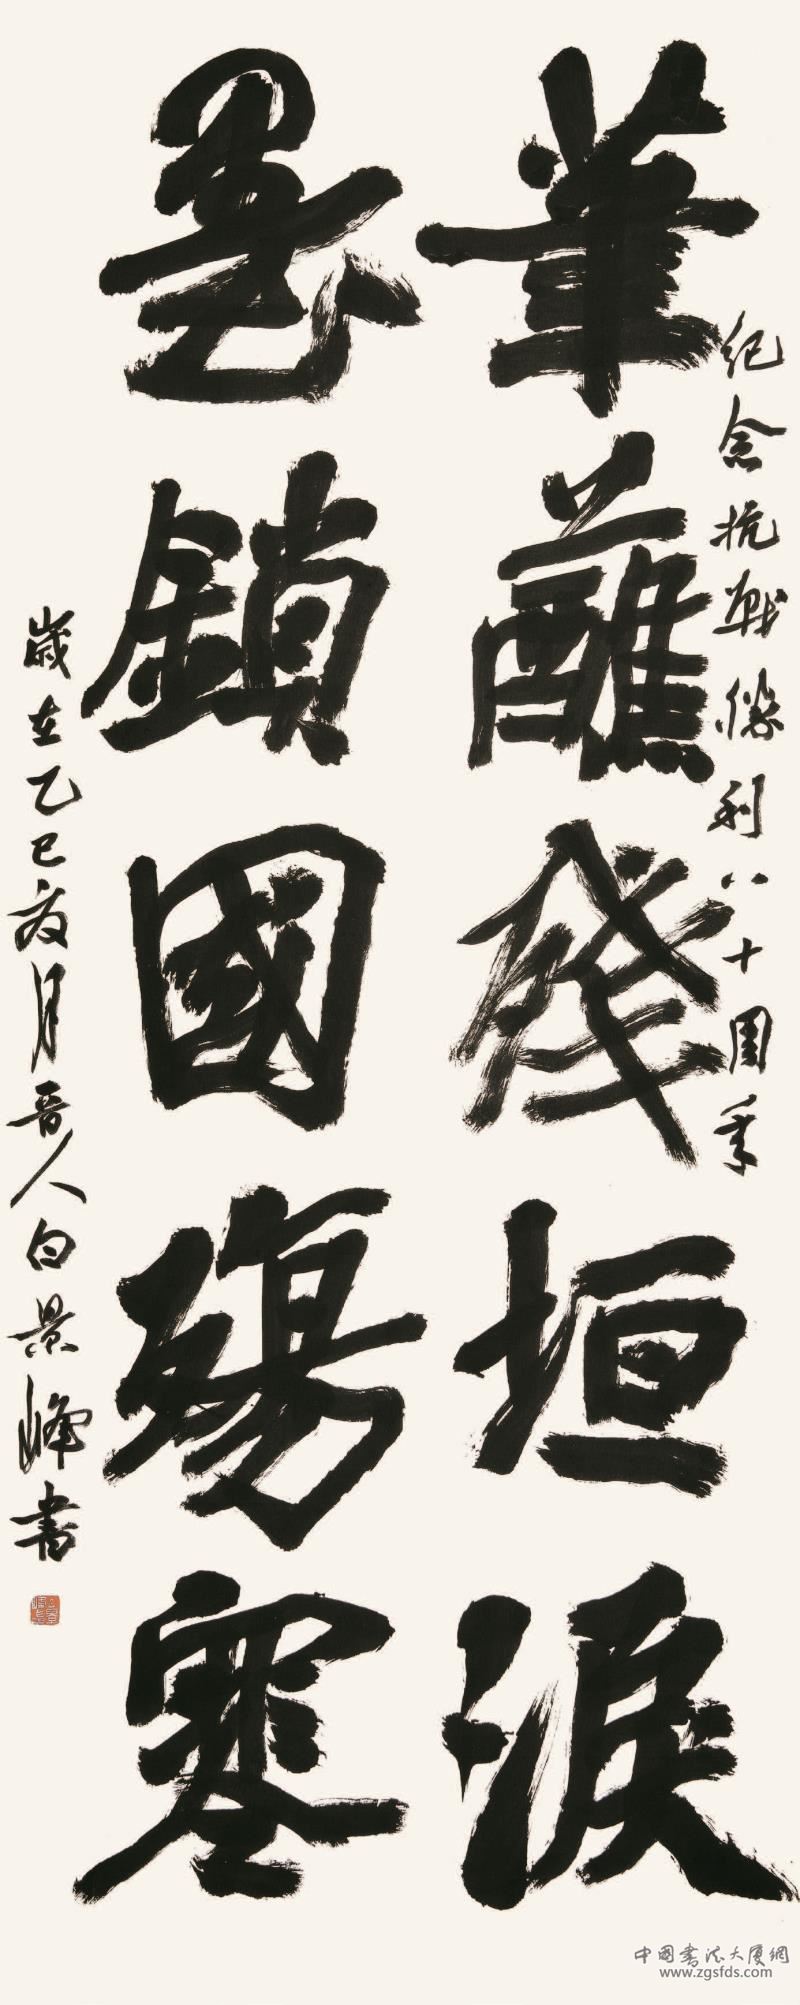 筆蘸殘垣淚
墨鎖國殤寒
纪念抗戰勝利八十周年
歲在乙巳夏月晋人白景峰書
中国書法大厦網
www.zgsfds.com